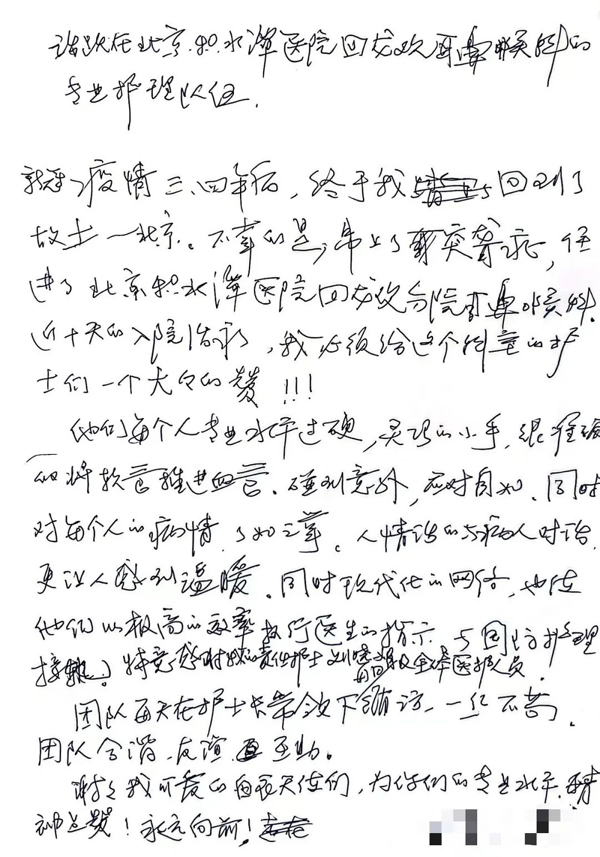 活跃在北京积水潭医院回龙观耳鼻喉科的
专业护理队伍.
新冠疫情三、四年后，终于我回到了
故土—北京。不幸的是，患上了突聋症，住
进了北京积水潭医院回龙观分院耳鼻喉科.
近十天的入院治疗，我必须给这个科室的护
士们一个大大的赞!!!
他们每个人专业水平过硬，灵巧的小手，很轻松
的将软管推进血管。碰到意外，应对自如.同时
对每个人的病情了如之掌。人情话的与病人对话
更让人感到温暖.同时现代化的网络，也使
他们以极高的效率执行医生的指示，与国际护理
接轨。特意感谢我的责任护士及全体医护人员.
团队每天在护士长带领下一丝不苟.
团队合谐、友谊互助.
谢谢我可爱的白衣天使们，为你们的专业水平、精
神点赞！永远向前!